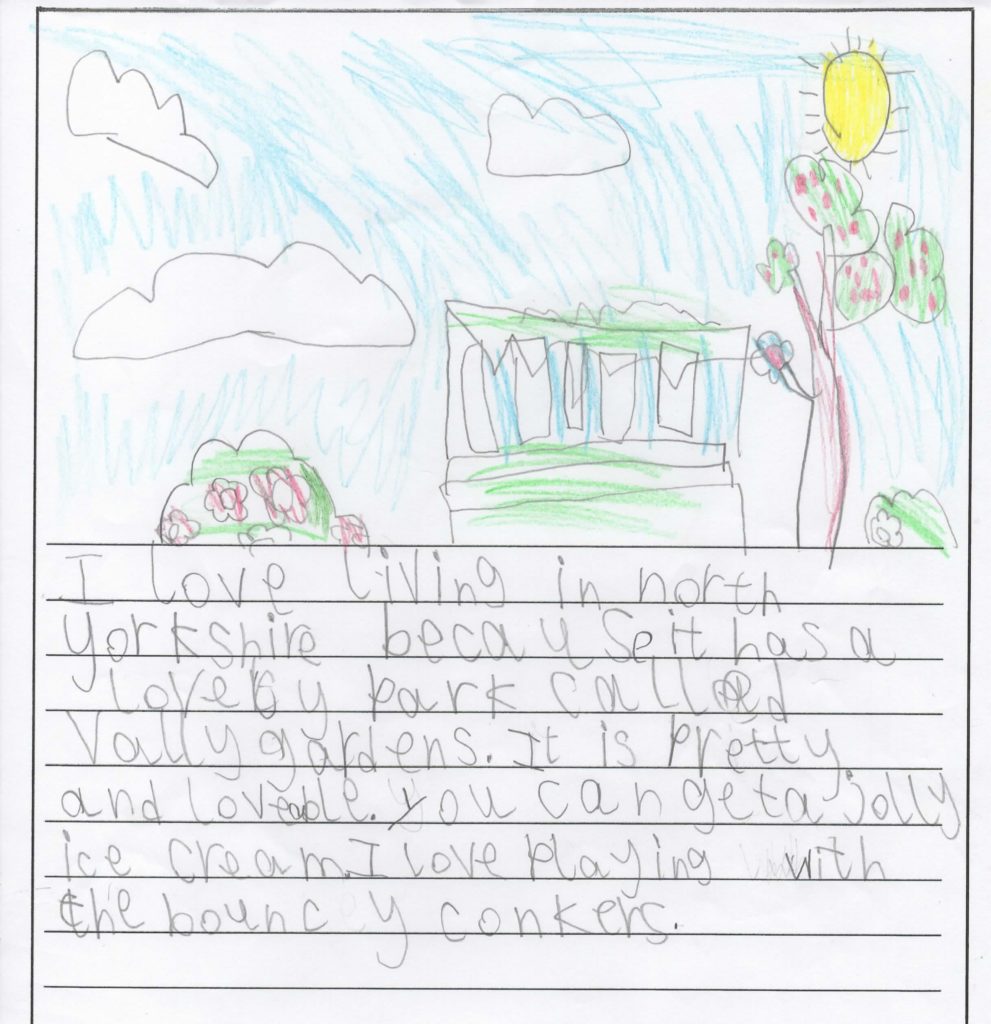 I love living in north
yorkshire because it has a
lovely park called
Vally gardens. It is pretty
and loveable. you can get a jolly
ice cream. I love playing with
the bouncy conkers.